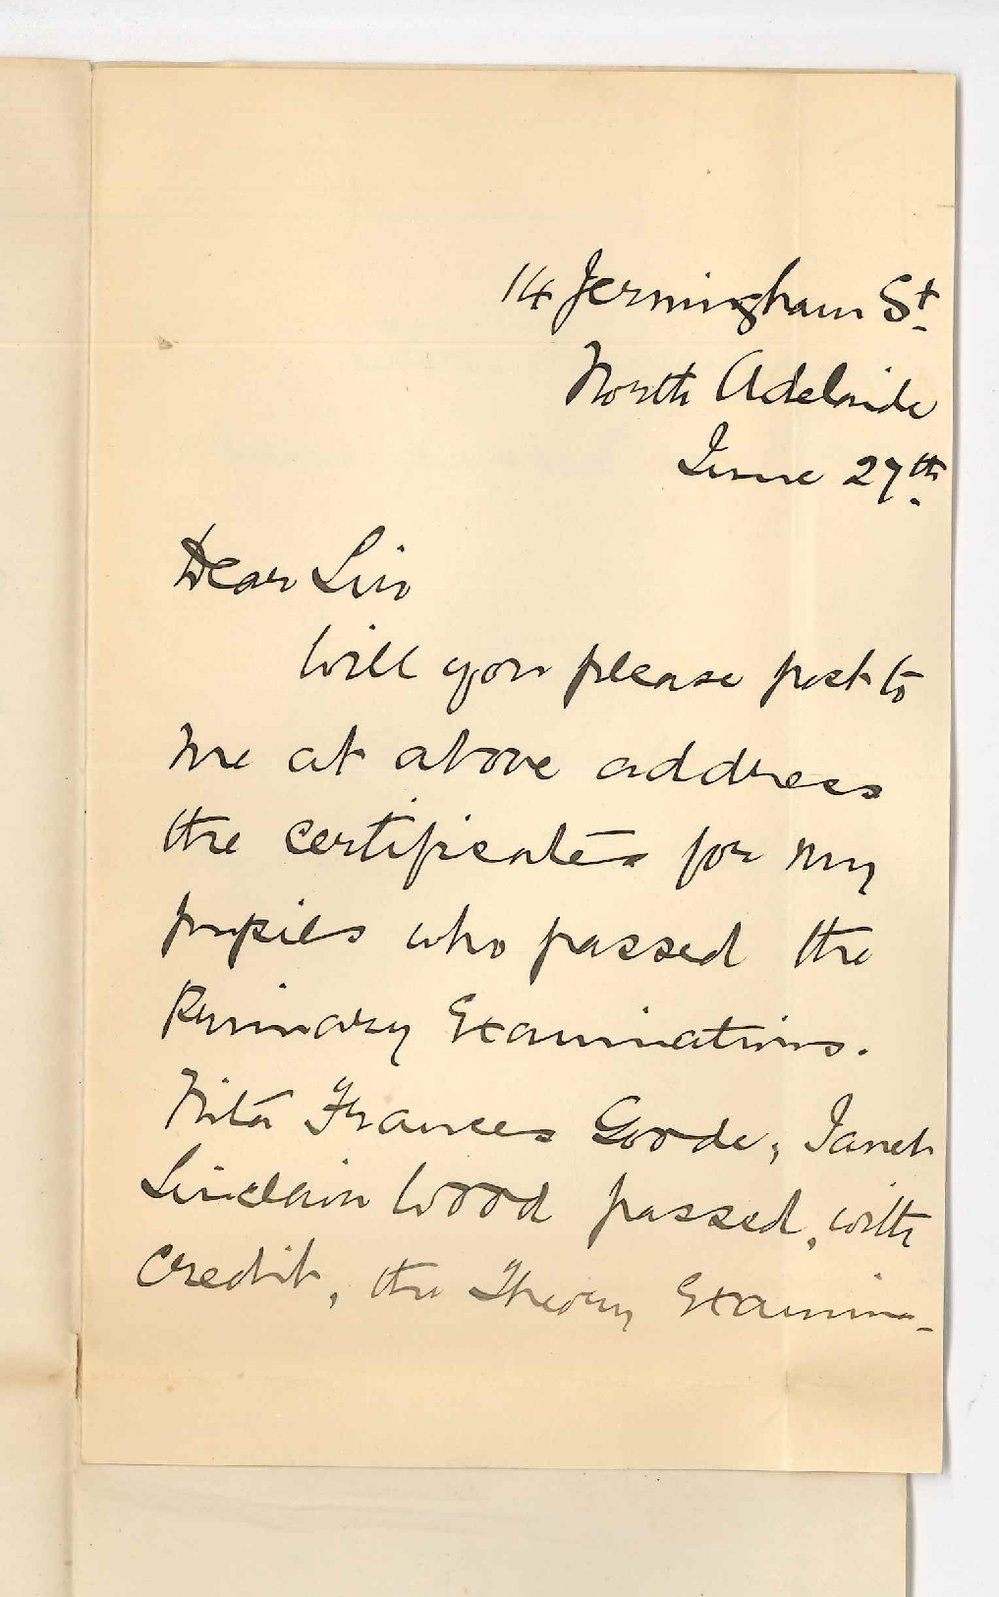 14 Jermingham St.
North Adelaide
June 27th.
Dear Sir
Will you please post to
me at above address
the certificates for my
pupils who passed the
Primary Examinations.
Nita Frances Goode, Janet
Sinclair Wood passed, with
credit, the Theory Examina-